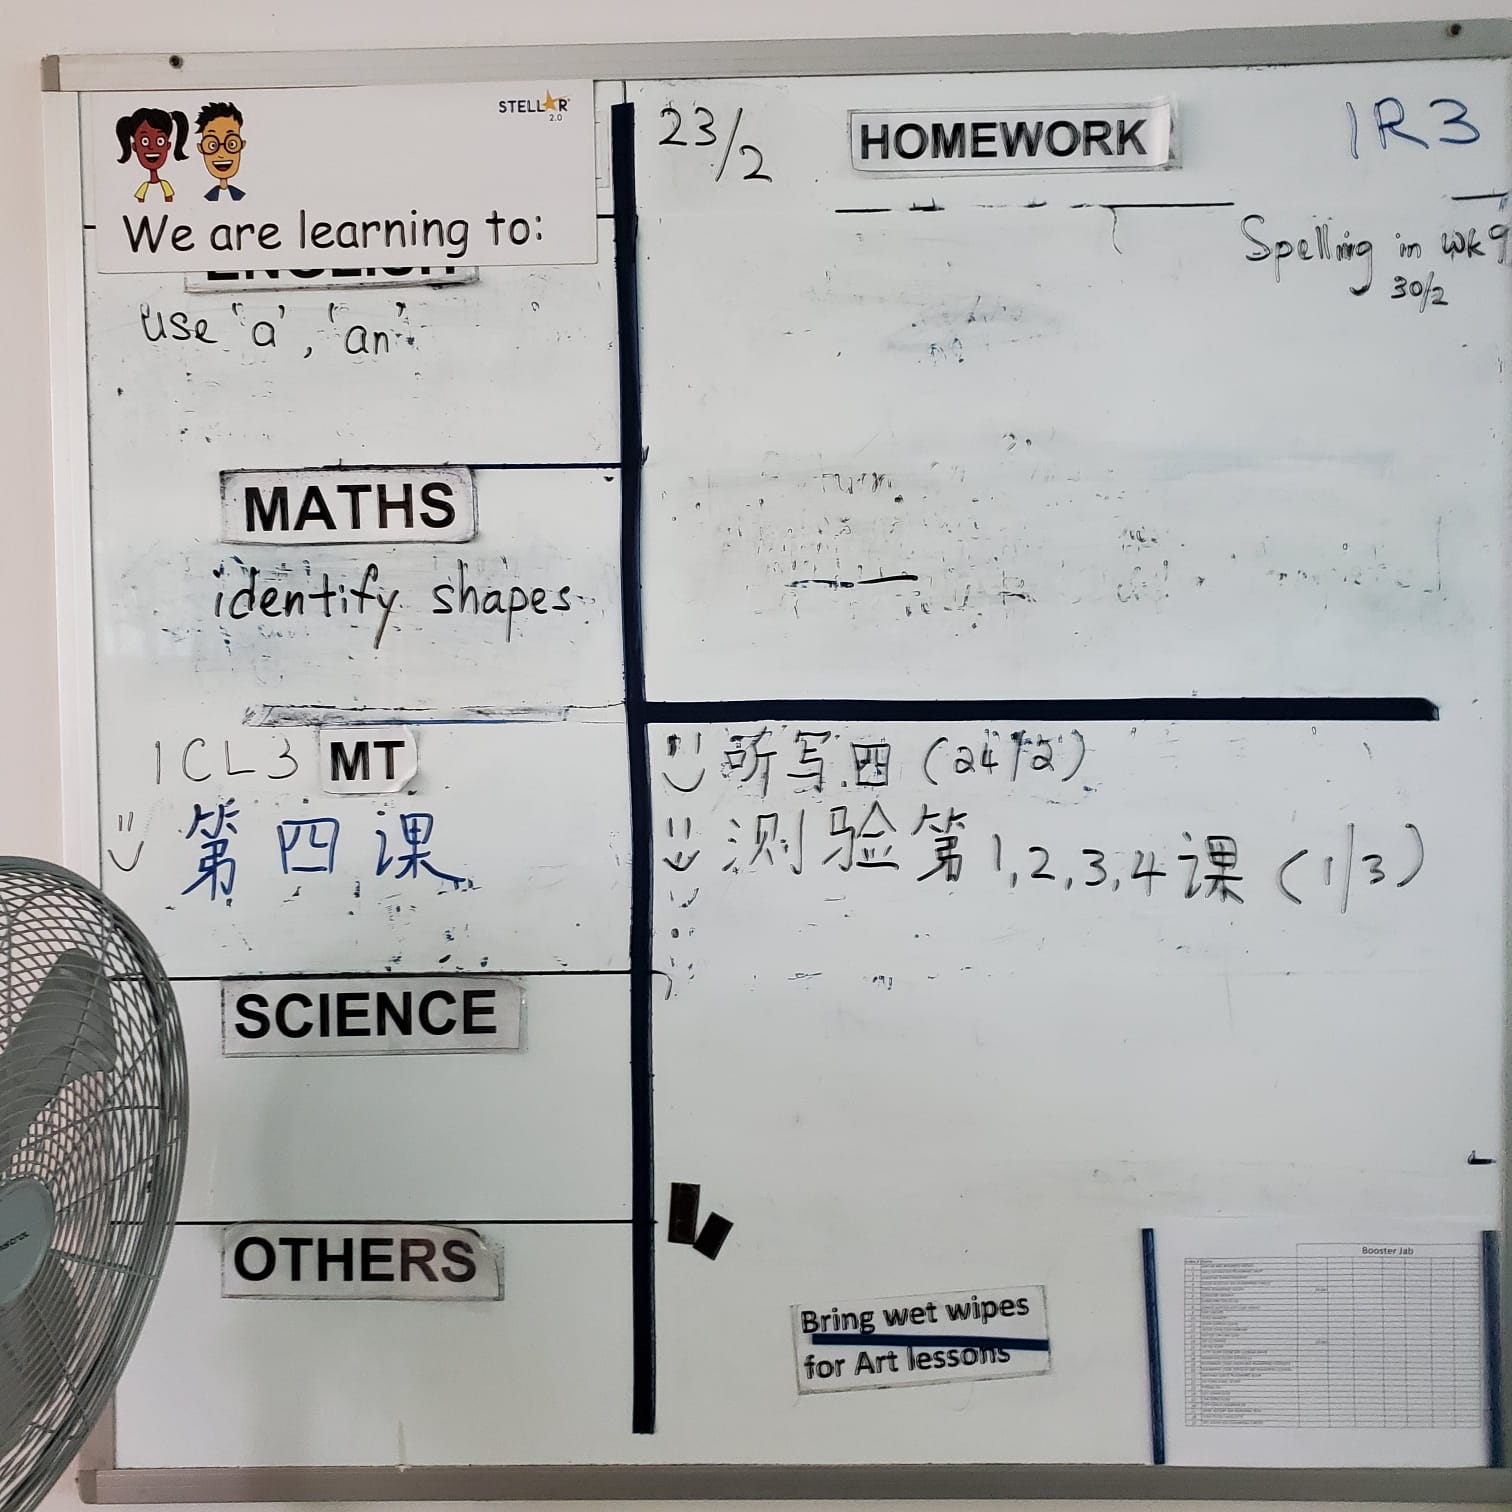 STELLAR
2.0
We are learning to:
ENGLISH
use 'a', 'an'
MATHS
identify shapes
1CL3 MT
第四课
SCIENCE
OTHERS
23/2 HOMEWORK 1R3
Spelling in wk 9
30/2
听写四 (24/2)
测验第1,2,3,4课 (1/3)
Bring wet wipes
for Art lessons
Booster Jab